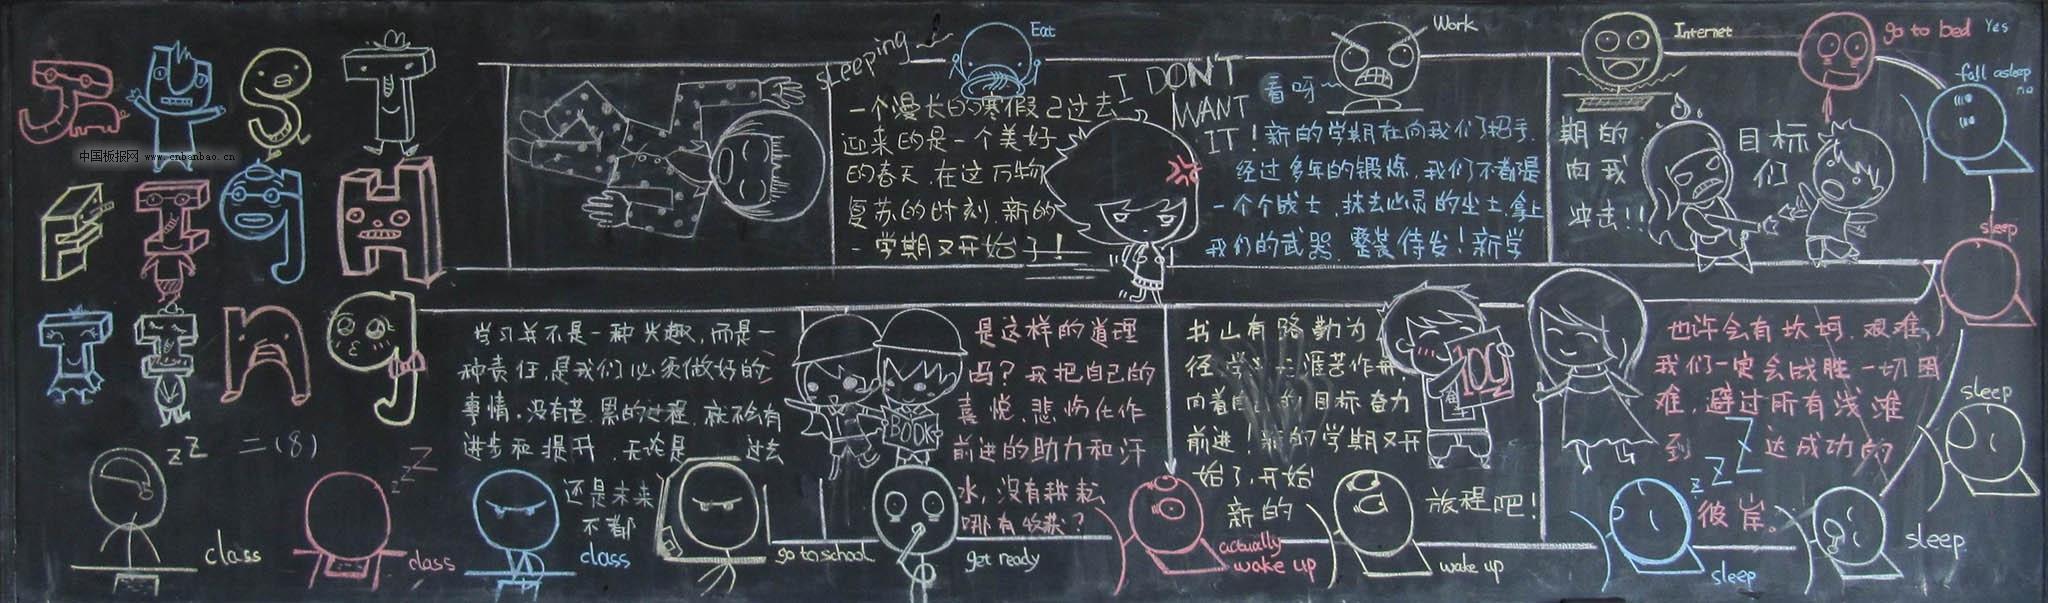 JUST
FIGH
TING
中国板报网 www.cnbanbao.cn
二(8)
sleeping
Eat
一个漫长的寒假已过去
迎来的是一个美好
的春天.在这万物
复苏的时刻.新的
一学期又开始了!
I DON'T
WANT
IT!
Work
看呀~
新的学期在向我们招手.
经过多年的锻炼.我们不都是
一个个战士.抹去心灵的尘土.拿上
我们的武器.整装待发!新学
Internet
期的 目标
向我 们
冲去!!
go to bed
Yes
fall asleep
no
sleep
sleep
学习并不是一种兴趣,而是一
种责任,是我们必须做好的
事情.没有苦.累的过程.就不会有
进步和提升.无论是 过去
还是未来
不都
是这样的道理
吗?我把自己的
喜悦,悲伤化作
前进的助力和汗
水,没有耕耘
哪有收获?
BOOK
书山有路勤为
径 学 涯苦作舟,
向着自己的目标奋力
前进!新的学期又开
始了,开始
新的
旅程吧!
100
也许会有坎坷.艰难,
我们一定会战胜一切困
难,避过所有浅滩
到 达成功的
彼岸。
zZ
class
zzZ
class
class
go to school
get ready
actually
wake up
wake up
zzZ
sleep
sleep